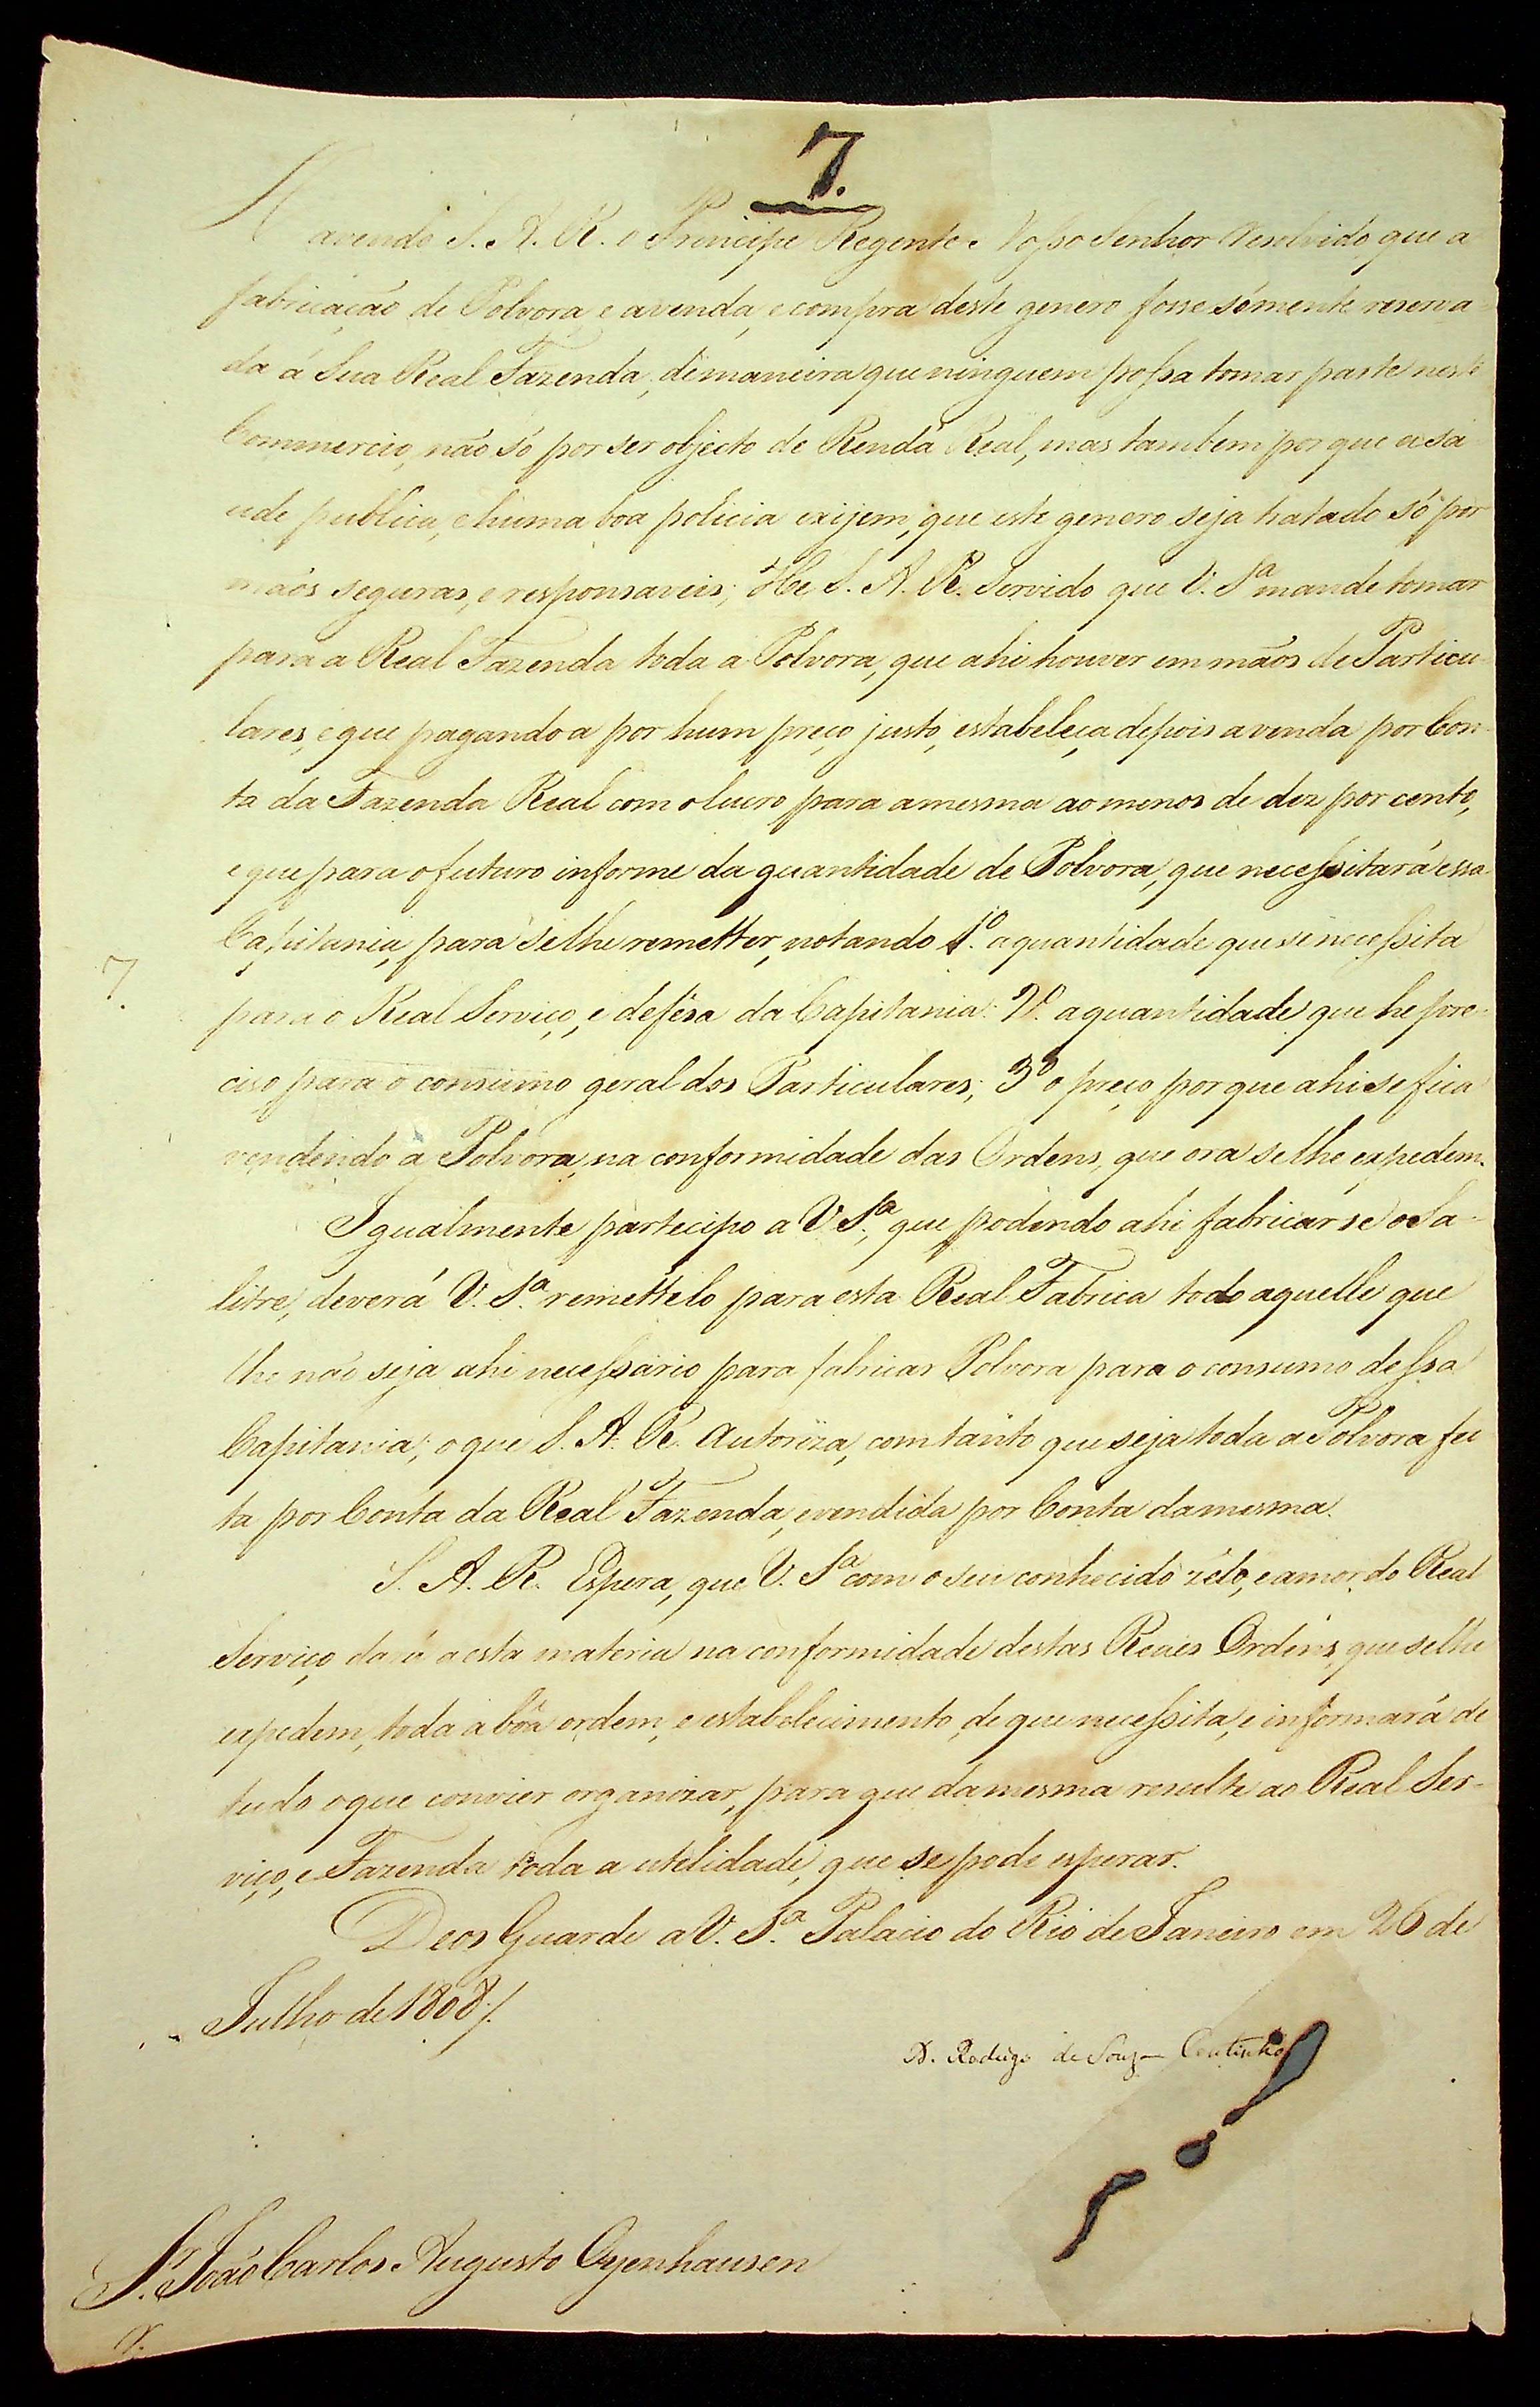 7.
Havendo S. A. R. o Principe Regente Nosso Senhor Resolvido, que a
fabricação de Polvora, e a venda, e compra deste genero fosse sómente reserva-
da á Sua Real Fazenda, de maneira que ninguem possa tomar parte neste
Commercio, não só por ser objecto de Renda Real, mas tambem porque a sa-
ude publica, e huma boa policia exijem, que este genero seja tratado só por
maõs seguras, e responsaveis; He S. A. R. Servido que V. Sª mande tomar
para a Real Fazenda toda a Polvora, que ahi houver em maõs de Particu-
lares, e que pagando a por hum preço justo, estabeleça depois a venda por Con-
ta da Fazenda Real com o lucro para a mesma ao menos de dez por cento,
e que para o futuro informe da quantidade de Polvora, que necessitará essa
Capitania, para se lhe remetter, notando 1º. a quantidade que se necessita
para o Real Serviço, e defésa da Capitania: 2º. a quantidade que he pre-
ciso para o consumo geral dos Particulares; 3º o preço porque ahi se fica
vendendo a Polvora, na conformidade das Ordens, que ora se lhe expedem.
Igualmente partecipo a V. Sª., que podendo ahi fabricar se o Sa-
litre, deverá V. Sª. remettelo para esta Real Fabrica todo aquelle que
lhe não seja ahi necessario para fabricar Polvora para o consumo dessa
Capitania; o que S. A. R. Autoriza, com tanto que seja toda a Polvora fei-
ta por Conta da Real Fazenda, e vendida por Conta da mesma.
S. A. R. Espera, que V. Sª com o seu conhecido zêlo, e amor do Real
Serviço dará a esta materia na conformidade destas Reaes Ordens, que se lhe
expedem, toda a bôa ordem, e estabelecimento, de que necessita, e informará de
tudo o que convier organizar, para que da mesma resulte ao Real Ser-
viço, e Fazenda toda a utelidade, que se pode esperar.
Deos Guarde a V. Sª. Palacio do Rio de Janeiro em 26 de
Julho de 1808./.
D. Rodrigo de Souza Coutinho
Sr. João Carlos Augusto Oyenhausen
7.